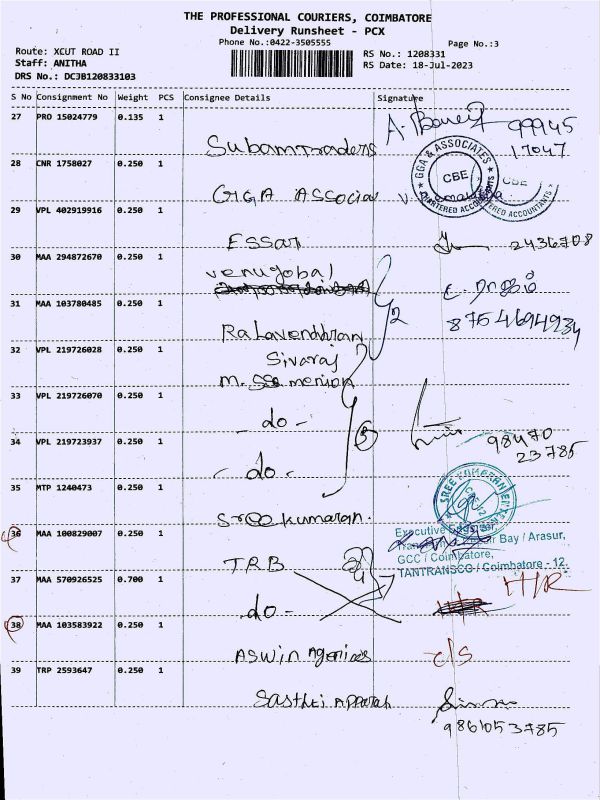 THE PROFESSIONAL COURIERS, COIMBATORE
Delivery Runsheet - PCX
Phone No.:0422-3505555
Page No.:3
Route: XCUT ROAD II
Staff: ANITHA
DRS No.: DCJB120833103
RS No.: 1208331
RS Date: 18-Jul-2023
S No Consignment No Weight PCS Consignee Details Signature
27 PRO 15024779 0.135 1
99945
17047
28 CNR 1758027 0.250 1
GGA Associa
GGA & ASSOCIATES
CBE
CHARTERED ACCOUNTANTS
CBE
ACCOUNTANTS
29 VPL 402919916 0.250 1
ESSAR 2436708
30 MAA 294872670 0.250 1
venugobal
31 MAA 103780485 0.250 1
2
32 VPL 219726028 0.250 1
Sivaraj
33 VPL 219726070 0.250 1
- do -
34 VPL 219723937 0.250 1
- do - 3
98470
23785
35 MTP 1240473 0.250 1
Sree kumaran.
36 MAA 100829007 0.250 1
TRB
Executive Engineer,
Bay / Arasur,
GCC / Coimbatore,
TANTRANSCO / Coimbatore - 12.
37 MAA 570926525 0.700 1
do -
38 MAA 103583922 0.250 1
Aswin Agencies C/S
39 TRP 2593647 0.250 1
9861053785